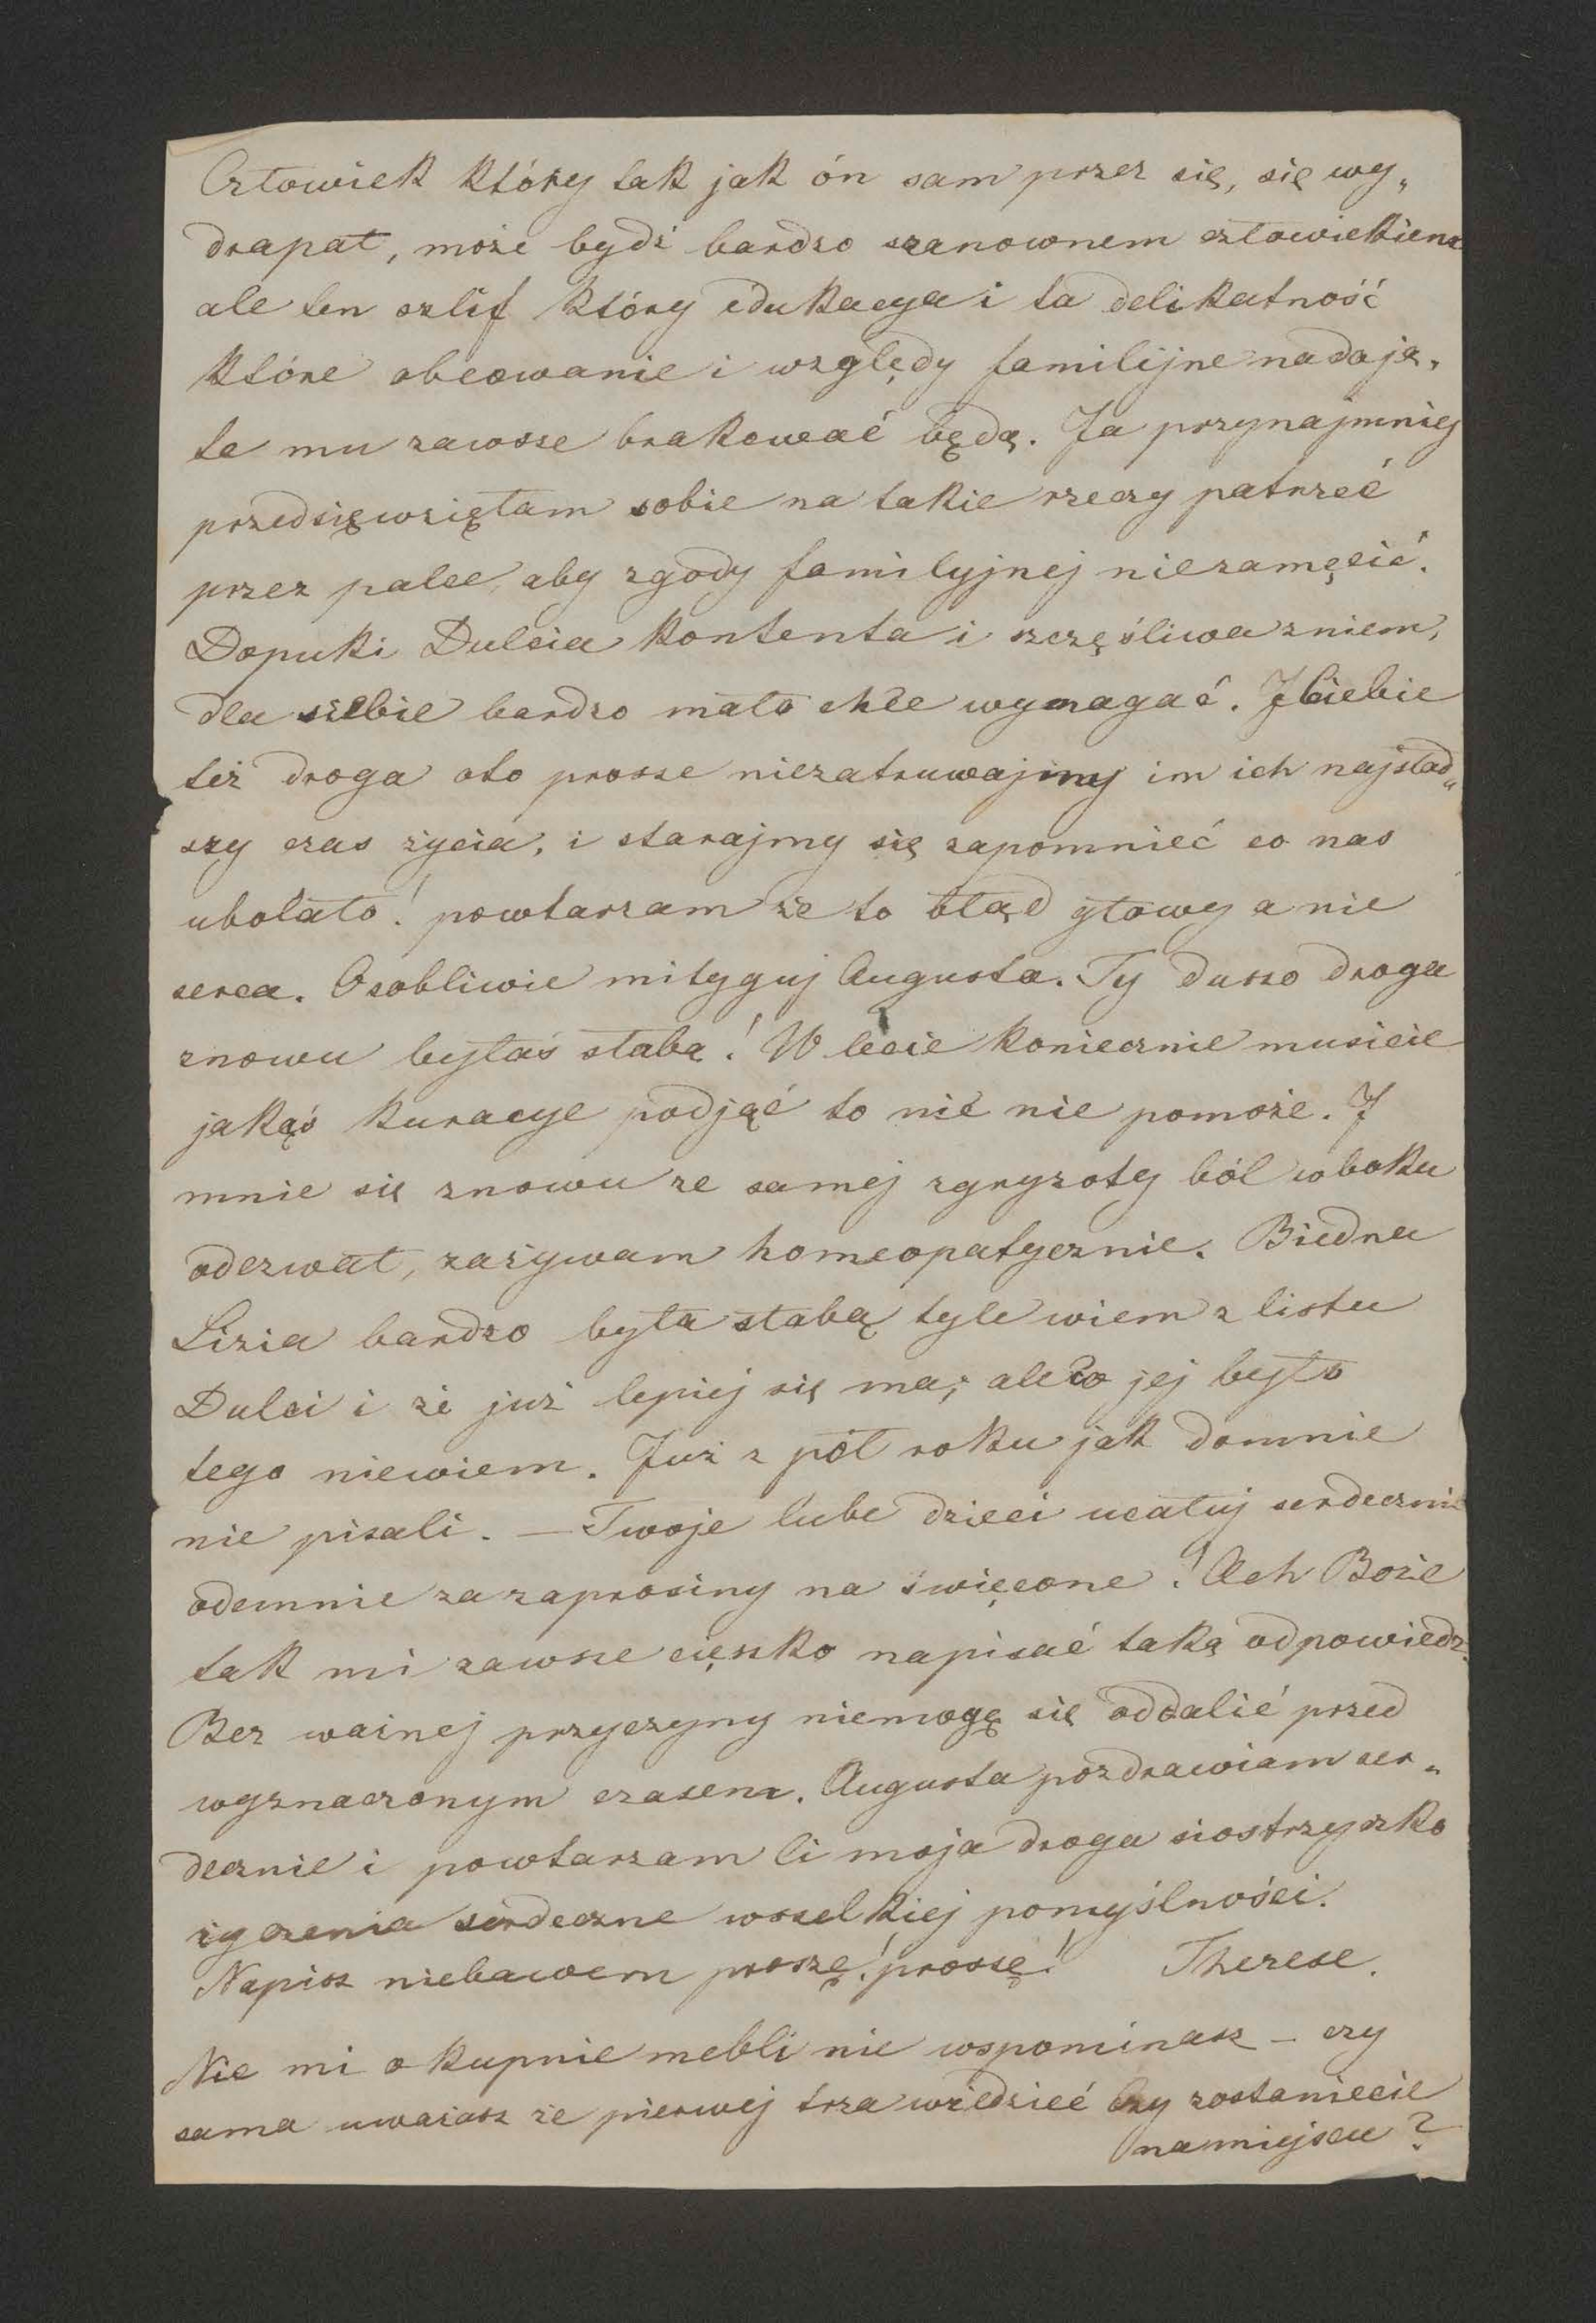 Człowiek który tak jak ón sam przez się, się wy„
drapał, może bydź bardzo szanownem człowiekiem
ale ten szlif który edukacya i ta delikatność
które obcowanie i względy familijne nadają,
te mu zawsze brakować będą. Ja przynajmniej
przedsięwzięłam sobie na takie rzeczy patrzeć
przez palce, aby zgody familyjnej niezamęcić.
Dopuki Dulcia kontenta i szczęśliwa zniem,
dla siebie bardzo mało chce wymagać. I Ciebie
też droga oto prosze niezatruwajmy im ich najsład„
szy czas życia, i starajmy się zapomnieć co nas
ubolało! powtarzam że to błąd głowy a nie
serca. Osobliwie mityguj Augusta. Ty duszo droga
znowu byłaś słabą! W lecie koniecznie musicie
jakąś kuracye podjąć to nić nie pomoże. I
mnie się znowu ze samej zgryzoty ból w boku
odezwał, zażywam homeopatycznie. Biedna
Lizia bardzo była słabą tyle wiem z listu
Dulci i że już lepiej się ma, ale co jej było
tego niewiem. Już z pół roku jak domnie
nie pisali. — Twoje lube dzieci ucałuj serdecznie
odemnie za zaprosiny na święcone! Ach Boże
tak mi zawsze cięszko napisać taką odpowiedz.
Bez ważnej przyczyny niemogę się oddalić przed
wyznaczonym czasem. Augusta pozdrawiam ser„
decznie i powtarzam Ci moja droga siostrzyszko
życzenia serdeczne wszelkiej pomyślności.
Napisz niebawem proszę! proszę! Therese.
Nic mi o kupnie mebli nie wspominasz – czy
sama uważasz że pierwej trza wiedzieć czy zostaniecie
na miejscu?